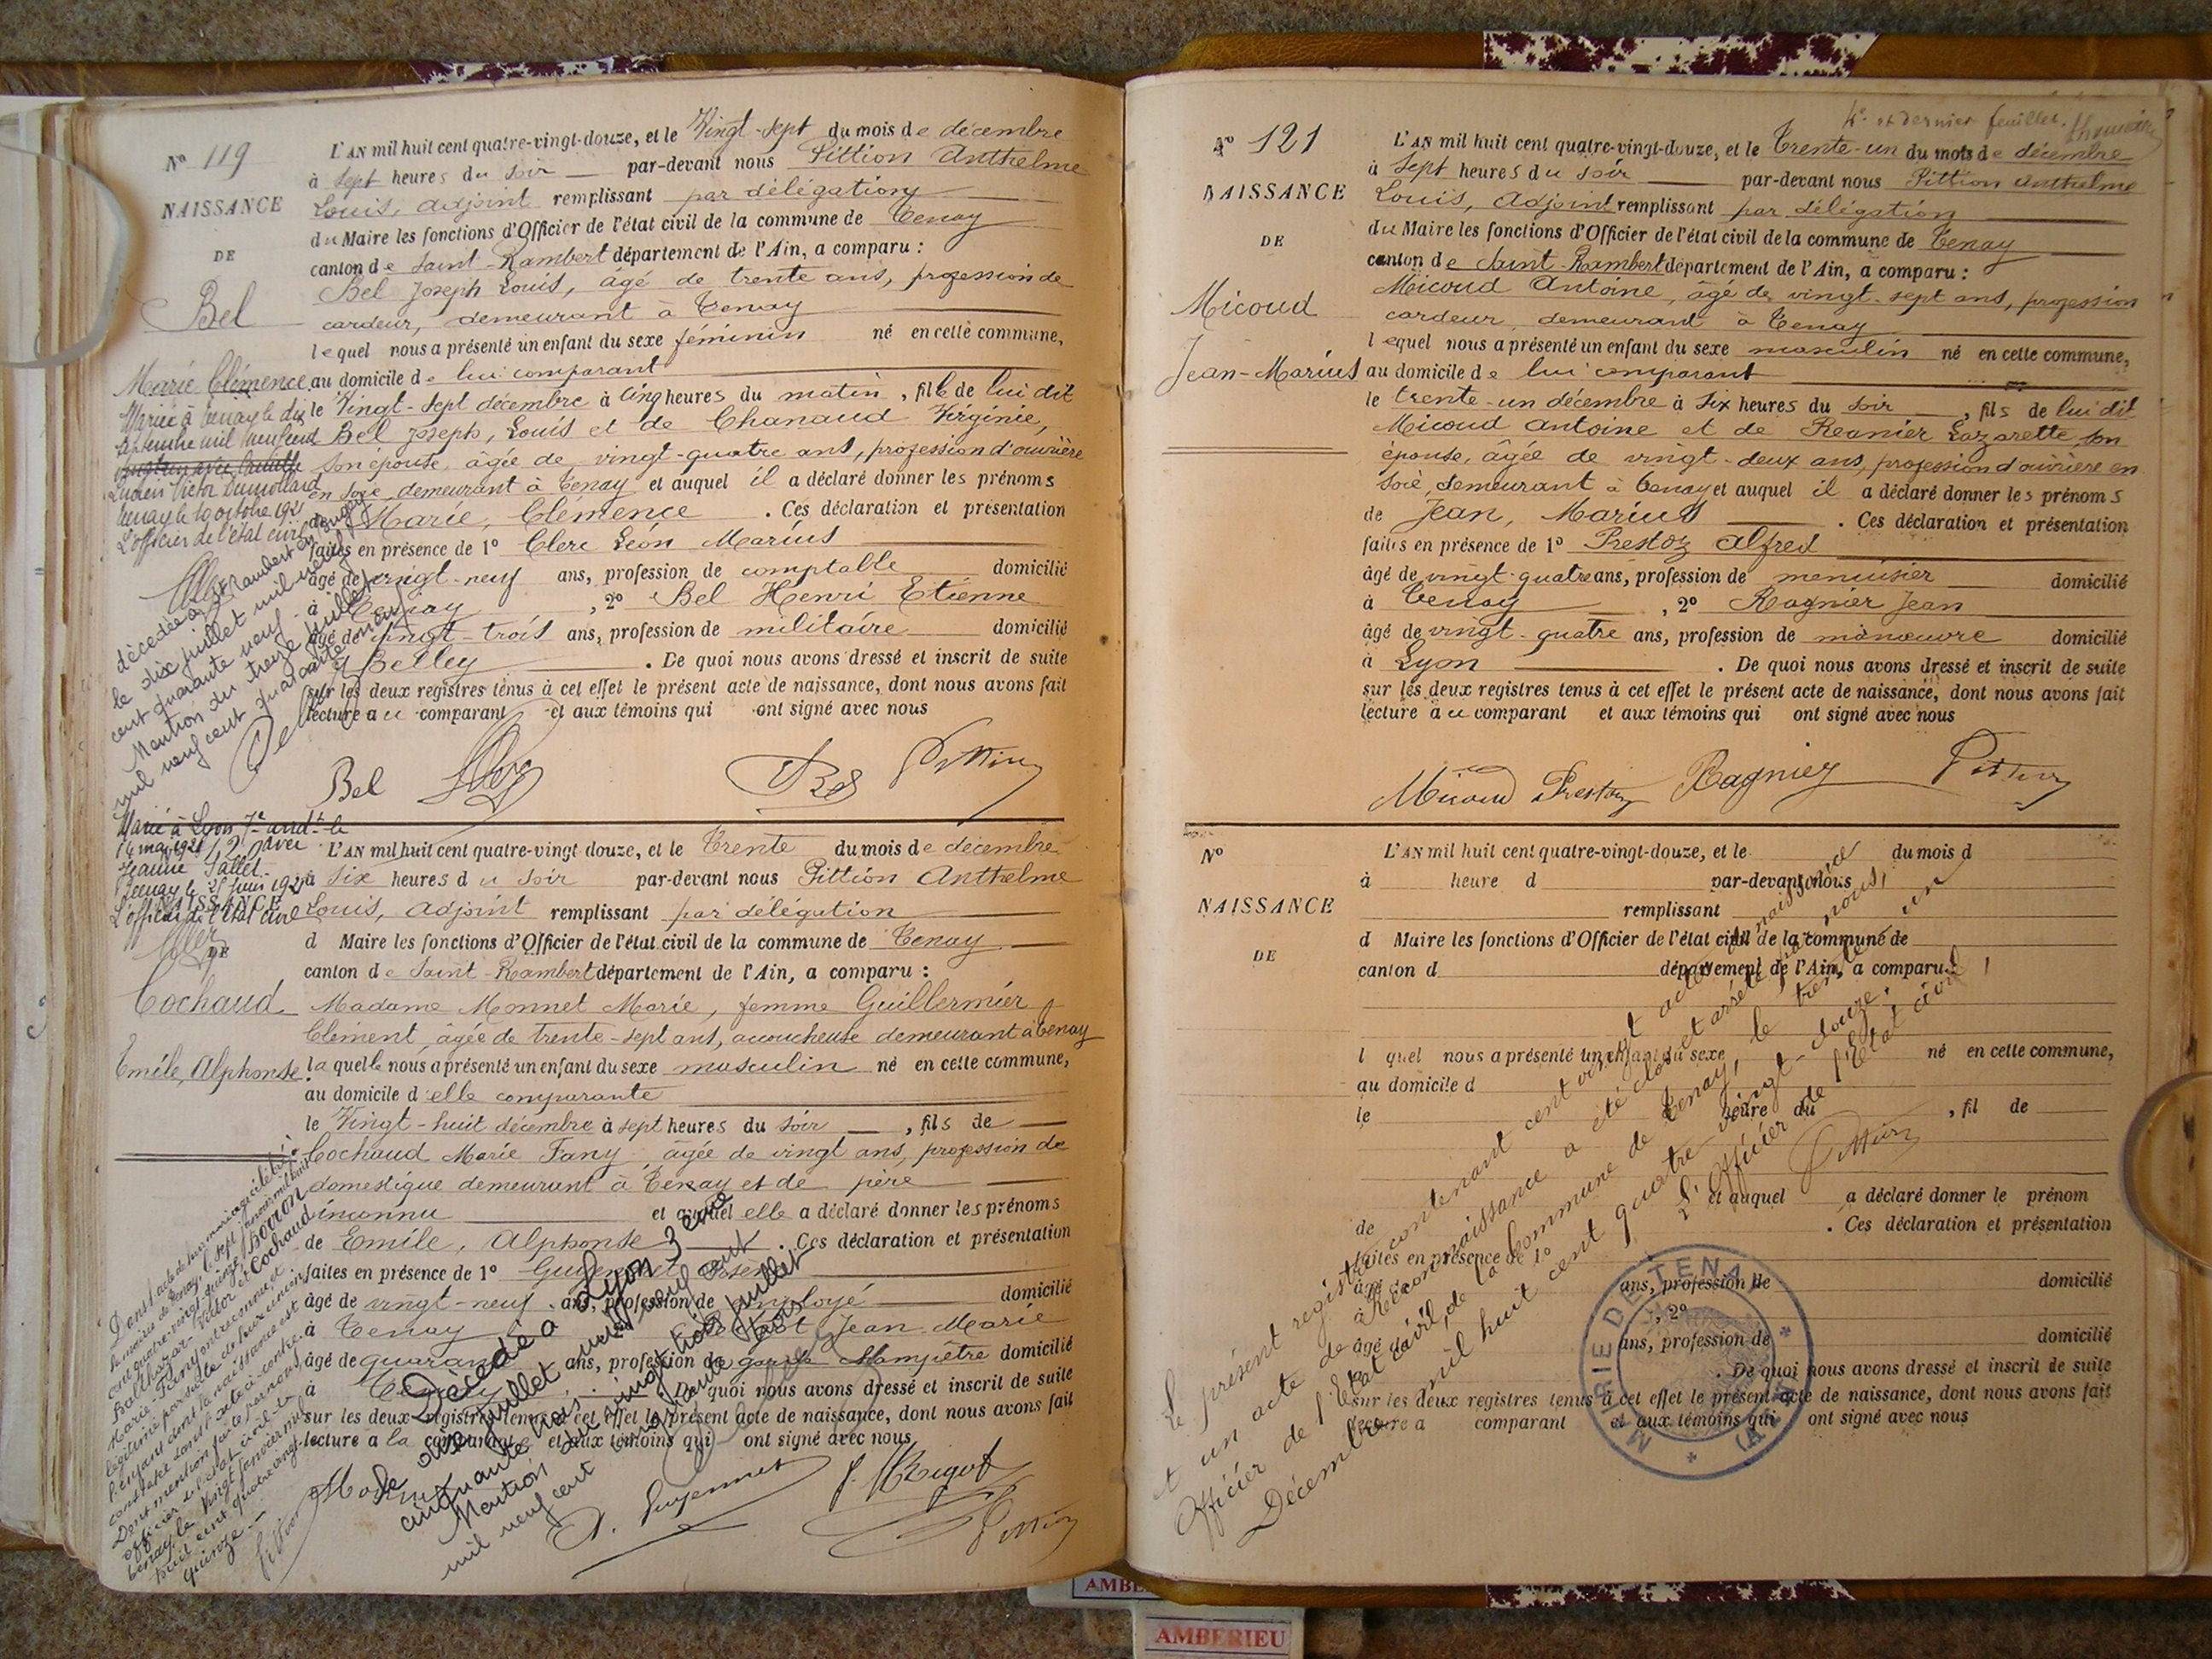 Nº 119
NAISSANCE
DE
Bel
Marie Clémence
L'AN mil huit cent quatre-vingt-douze, et le Vingt-sept du mois de décembre
à sept heures du soir par-devant nous Pittion Anthelme
Louis, adjoint remplissant par délégation
du Maire les fonctions d'Officier de l'état civil de la commune de Tenay
canton de Saint-Rambert département de l'Ain, a comparu :
Bel Joseph Louis, âgé de trente ans, profession de
cardeur, demeurant à Tenay
lequel nous a présenté un enfant du sexe féminin né en cette commune,
au domicile de lui comparant
le Vingt-sept décembre à cinq heures du matin, fille de lui dit
Bel Joseph, Louis et de Chanaud Virginie,
son épouse, âgée de vingt-quatre ans, profession d'ouvrière
en soie, demeurant à Tenay et auquel il a déclaré donner les prénoms
de Marie, Clémence . Ces déclaration et présentation
faites en présence de 1º Clerc Léon Marius
âgé de vingt-neuf ans, profession de comptable domicilié
à Tenay , 2º Bel Henri Etienne
âgé de vingt-trois ans, profession de militaire domicilié
à Belley . De quoi nous avons dressé et inscrit de suite
sur les deux registres tenus à cet effet le présent acte de naissance, dont nous avons fait
lecture au comparant et aux témoins qui ont signé avec nous
Bel
Bel Pittion
Mariée à Tenay le dix
septembre mil neuf cent
Lucien Victor Dumollard
Tenay le 10 octobre 1921
L'officier de l'état civil
décédée à St Rambert en Bugey
le dix juillet mil neuf
cent quarante neuf
Mention du treize juillet
mil neuf cent quarante neuf
Marié à Lyon 7e arrdt le
14 mai 1921 avec
Jeanne Sallet
Tenay le 25 juin 1921
L'officier de l'état civil
NAISSANCE
DE
Cochaud
Emile, Alphonse
L'AN mil huit cent quatre-vingt-douze, et le Trente du mois de décembre
à six heures du soir par-devant nous Pittion Anthelme
Louis, adjoint remplissant par délégation
d Maire les fonctions d'Officier de l'état civil de la commune de Tenay
canton de Saint-Rambert département de l'Ain, a comparu :
Madame Monnet Marie, femme Guillermier
Clément, âgée de trente-sept ans, accoucheuse demeurant à Tenay
laquelle nous a présenté un enfant du sexe masculin né en cette commune,
au domicile d'elle comparante
le Vingt-huit décembre à sept heures du soir , fils de
Cochaud Marie Fany âgée de vingt ans, profession de
domestique demeurant à Tenay et de père
inconnu et auquel elle a déclaré donner les prénoms
de Emile, Alphonse . Ces déclaration et présentation
faites en présence de 1º
âgé de vingt-neuf ans, profession de employé domicilié
à Tenay Jean Marie
âgé de quarante ans, profession de garde champêtre domicilié
à Tenay . De quoi nous avons dressé et inscrit de suite
sur les deux registres tenus à cet effet le présent acte de naissance, dont nous avons fait
lecture a la comparante et aux témoins qui ont signé avec nous
Pittion
Décédé à Lyon 3eme
le onze juillet mil neuf cent
cinquante trois
Mention du vingt trois juillet
mil neuf cent cinquante trois
Dans l'acte de leur mariage célébré à
la mairie de Tenay, le sept janvier mil huit
cent quatre-vingt-quinze,
Balthazar-Victor et Cochaud
Marie-Fany ont reconnu, et
légitimé par suite de leur union
l'enfant dont la naissance est
constatée dans l'acte ci-contre.
Dont mention faite par nous
officier de l'état civil de
Tenay, le vingt janvier mil
huit cent quatre vingt
quinze.
4e et dernier feuillet.
Nº 121
NAISSANCE
DE
Micoud
Jean-Marius
L'AN mil huit cent quatre-vingt-douze, et le Trente-un du mois de décembre
à sept heures du soir par-devant nous Pittion Anthelme
Louis, adjoint remplissant par délégation
du Maire les fonctions d'Officier de l'état civil de la commune de Tenay
canton de Saint-Rambert département de l'Ain, a comparu :
Micoud Antoine, âgé de vingt-sept ans, profession
cardeur, demeurant à Tenay
lequel nous a présenté un enfant du sexe masculin né en cette commune,
au domicile de lui comparant
le trente-un décembre à six heures du soir , fils de lui dit
Micoud Antoine et de Regnier Lazarette son
épouse, âgée de vingt-deux ans, profession d'ouvrière en
soie, demeurant à Tenay et auquel il a déclaré donner les prénoms
de Jean, Marius . Ces déclaration et présentation
faites en présence de 1º Prestoz Alfred
âgé de vingt-quatre ans, profession de menuisier domicilié
à Tenay , 2º Ragnier Jean
âgé de vingt-quatre ans, profession de manœuvre domicilié
à Lyon . De quoi nous avons dressé et inscrit de suite
sur les deux registres tenus à cet effet le présent acte de naissance, dont nous avons fait
lecture au comparant et aux témoins qui ont signé avec nous
Micoud Prestoz Ragnier Pittion
Nº
NAISSANCE
DE
L'AN mil huit cent quatre-vingt-douze, et le du mois d
à heure d par-devant nous
remplissant
d Maire les fonctions d'Officier de l'état civil de la commune de
canton d département de l'Ain, a comparu :
l quel nous a présenté un enfant du sexe né en cette commune,
au domicile d
le heure du , fil de
et auquel a déclaré donner le prénom
de . Ces déclaration et présentation
faites en présence de 1º
âgé de ans, profession de domicilié
à , 2º
âgé de ans, profession de domicilié
à . De quoi nous avons dressé et inscrit de suite
sur les deux registres tenus à cet effet le présent acte de naissance, dont nous avons fait
lecture a comparant et aux témoins qui ont signé avec nous
Le présent registre contenant cent vingt actes de naissance
et un acte de Reconnaissance a été clos et arrêté par nous,
Officier de l'Etat civil, de la Commune de Tenay, le trente un
Décembre mil huit cent quatre vingt-douze.
L'Officier de l'Etat civil
Pittion
MAIRIE DE TENAY
(AIN)
AMBERIEU